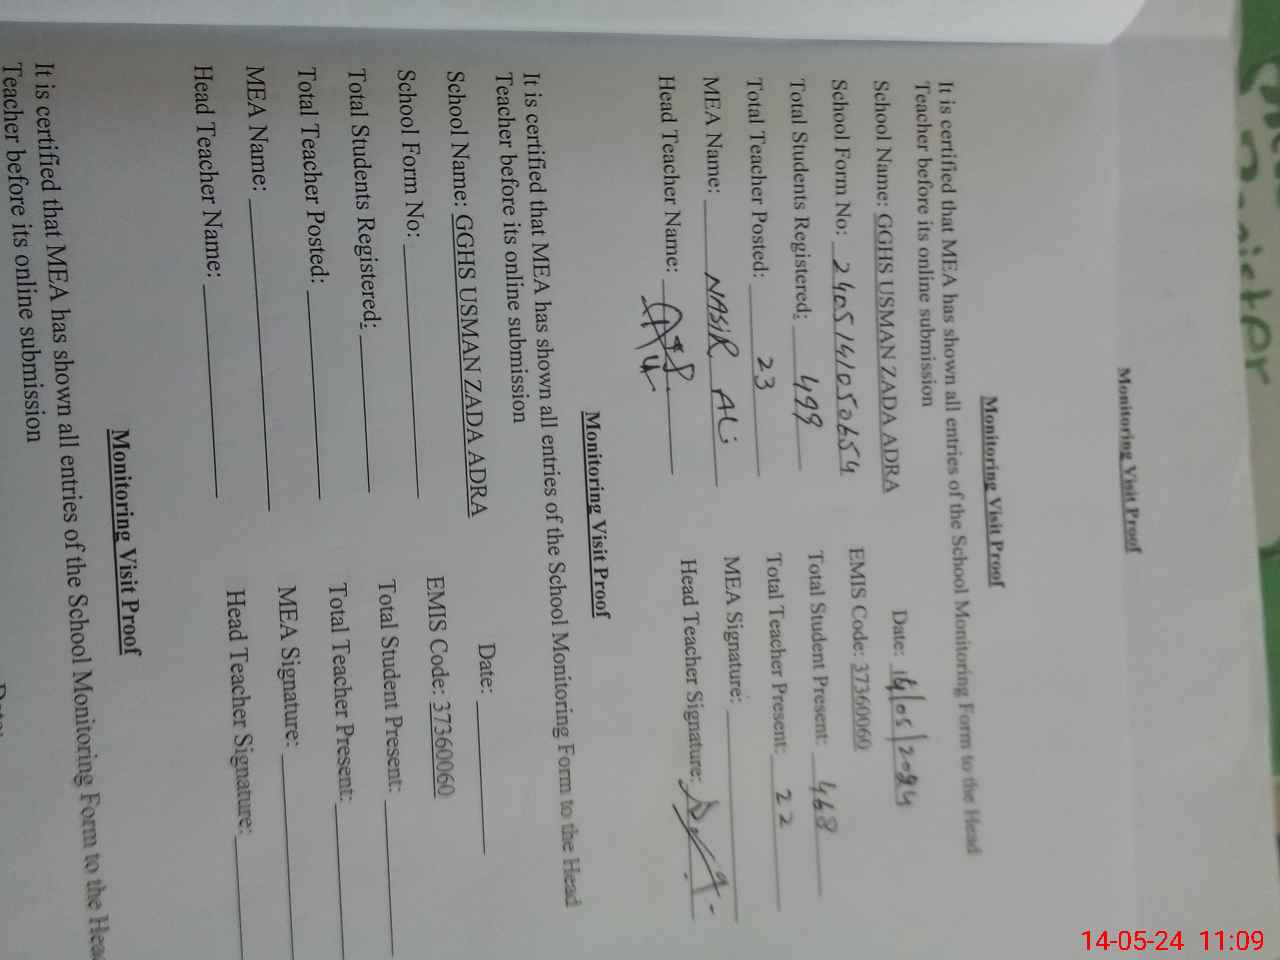 Register
Monitoring Visit Proof
Monitoring Visit Proof
It is certified that MEA has shown all entries of the School Monitoring Form to the Head
Teacher before its online submission
Date: 14/05/2024
School Name: GGHS USMAN ZADA ADRA
EMIS Code: 37360060
School Form No: 2405141050654
Total Student Present: 468
Total Students Registered: 499
Total Teacher Present: 22
Total Teacher Posted: 23
MEA Signature:
MEA Name: NASIR ALi
Head Teacher Signature:
Head Teacher Name:
Monitoring Visit Proof
It is certified that MEA has shown all entries of the School Monitoring Form to the Head
Teacher before its online submission
Date:
School Name: GGHS USMAN ZADA ADRA
EMIS Code: 37360060
School Form No:
Total Student Present:
Total Students Registered:
Total Teacher Present:
Total Teacher Posted:
MEA Signature:
MEA Name:
Head Teacher Signature:
Head Teacher Name:
Monitoring Visit Proof
It is certified that MEA has shown all entries of the School Monitoring Form to the Hea
Teacher before its online submission
14-05-24 11:09